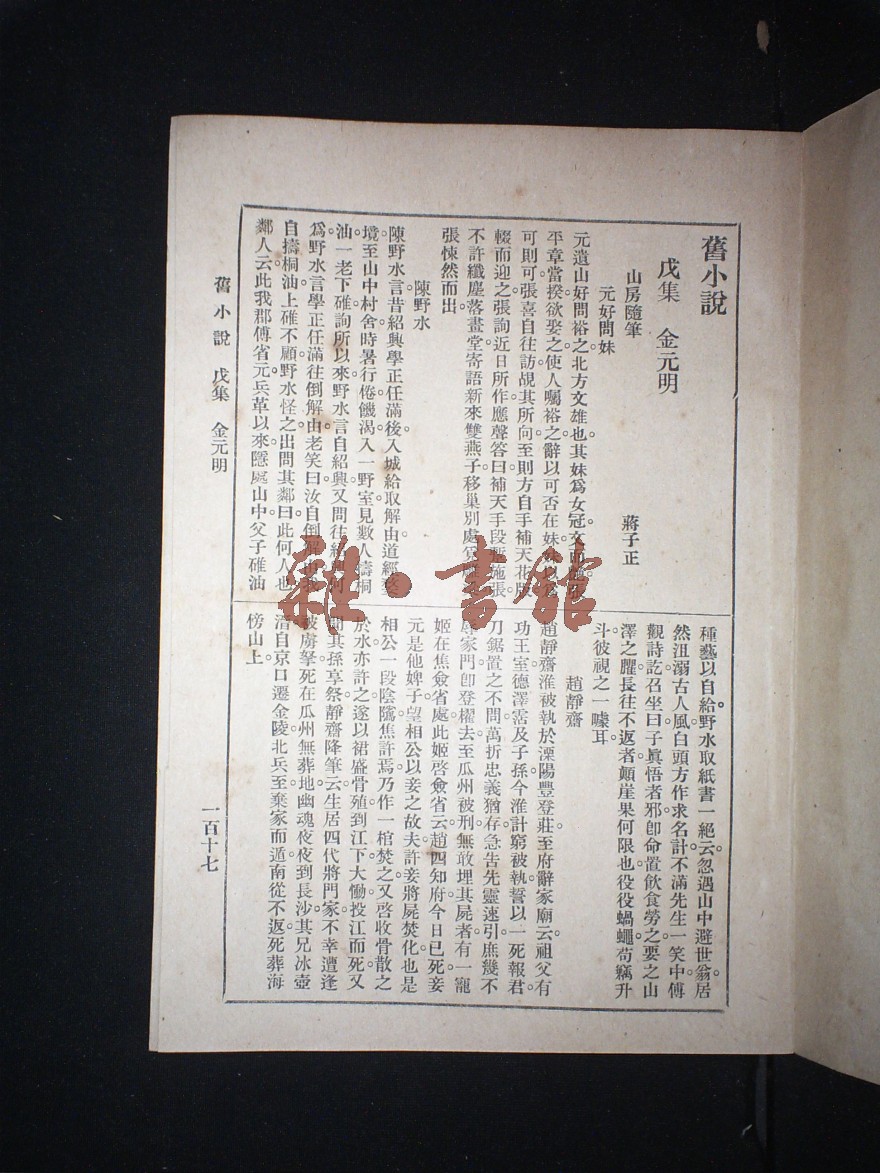 舊小說
戊集　金元明
山房隨筆　蔣子正
元好問妹
元遺山好問裕之北方文雄也其妹爲女冠文而
平章當揆欲娶之使人囑裕之辭以可否在妹妹以爲
可則可張喜自往訪覘其所向至則方自手補天花版
輟而迎之張詢近日所作應聲答曰補天手段暫施張
不許纖塵落畫堂寄語新來雙燕子移巢別處
張悚然而出
陳野水
陳野水言昔紹興學正任滿後入城給取解由道經
境至山中村舍時暑行倦饑渴入一野室見數人擣桐
油一老下碓詢所以來野水言自紹興又問往
爲野水言學正任滿往倒解由老笑曰汝自倒解由我
自擣桐油上碓不顧野水怪之出問其鄰曰此何人也
鄰人云此我郡傅省元兵革以來隱處山中父子碓油
種藝以自給野水取紙書一絕云忽遇山中避世翁居
然沮溺古人風白頭方作求名計不滿先生一笑中傅
觀詩訖召坐曰子眞悟者邪卽命置飮食勞之要之山
澤之臞長往不返者顛崖果何限也役役蝸蠅苟竊升
斗彼視之一噱耳
趙靜齋
趙靜齋淮被執於溧陽豐登莊至府辭家廟云祖父有
功王室德澤霑及子孫今淮計窮被執誓以一死報君
刀鋸置之不問萬折忠義猶存急告先靈速引庶幾不
辱家門卽登櫂去至瓜州被刑無敢埋其屍者有一寵
姬在焦僉省處此姬啓僉省云趙四知府今日已死妾
元是他婢子望相公以妾之故夫許妾將屍焚化也是
相公一段陰隲焦許焉乃作一棺焚之又啓收骨散之
於水亦許之遂以裙盛骨殖到江下大慟投江而死又
聞其孫享祭靜齋降筆云生居四代將門家不幸遭逢
被虜拏死在瓜州無葬地幽魂夜夜到長沙其兄冰壺
溍自京口遷金陵北兵至棄家而遁南從不返死葬海
傍山上
舊小說　戊集　金元明　一百十七
雜·書館